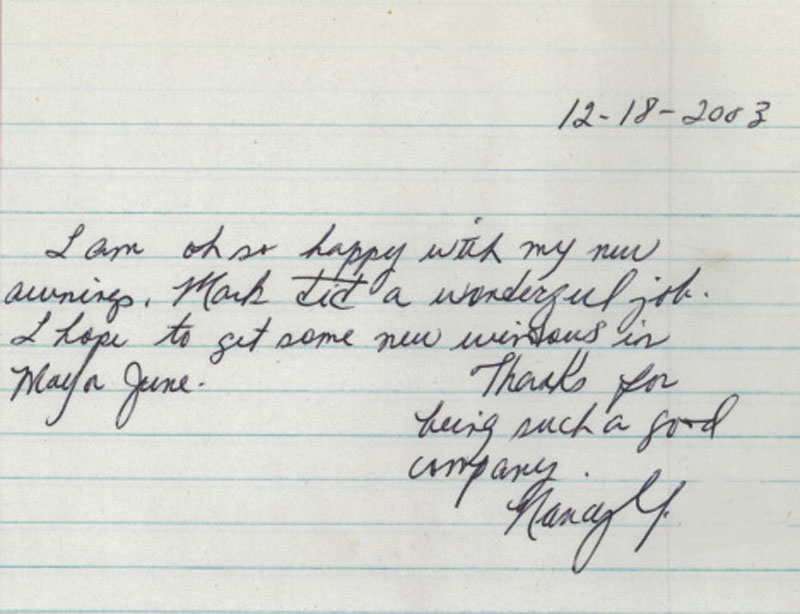 12-18-2003
I am oh so happy with my new
awnings. Mark did a wonderful job.
I hope to get some new windows in
May or June. Thanks for
being such a good
company.
Nancy Y.